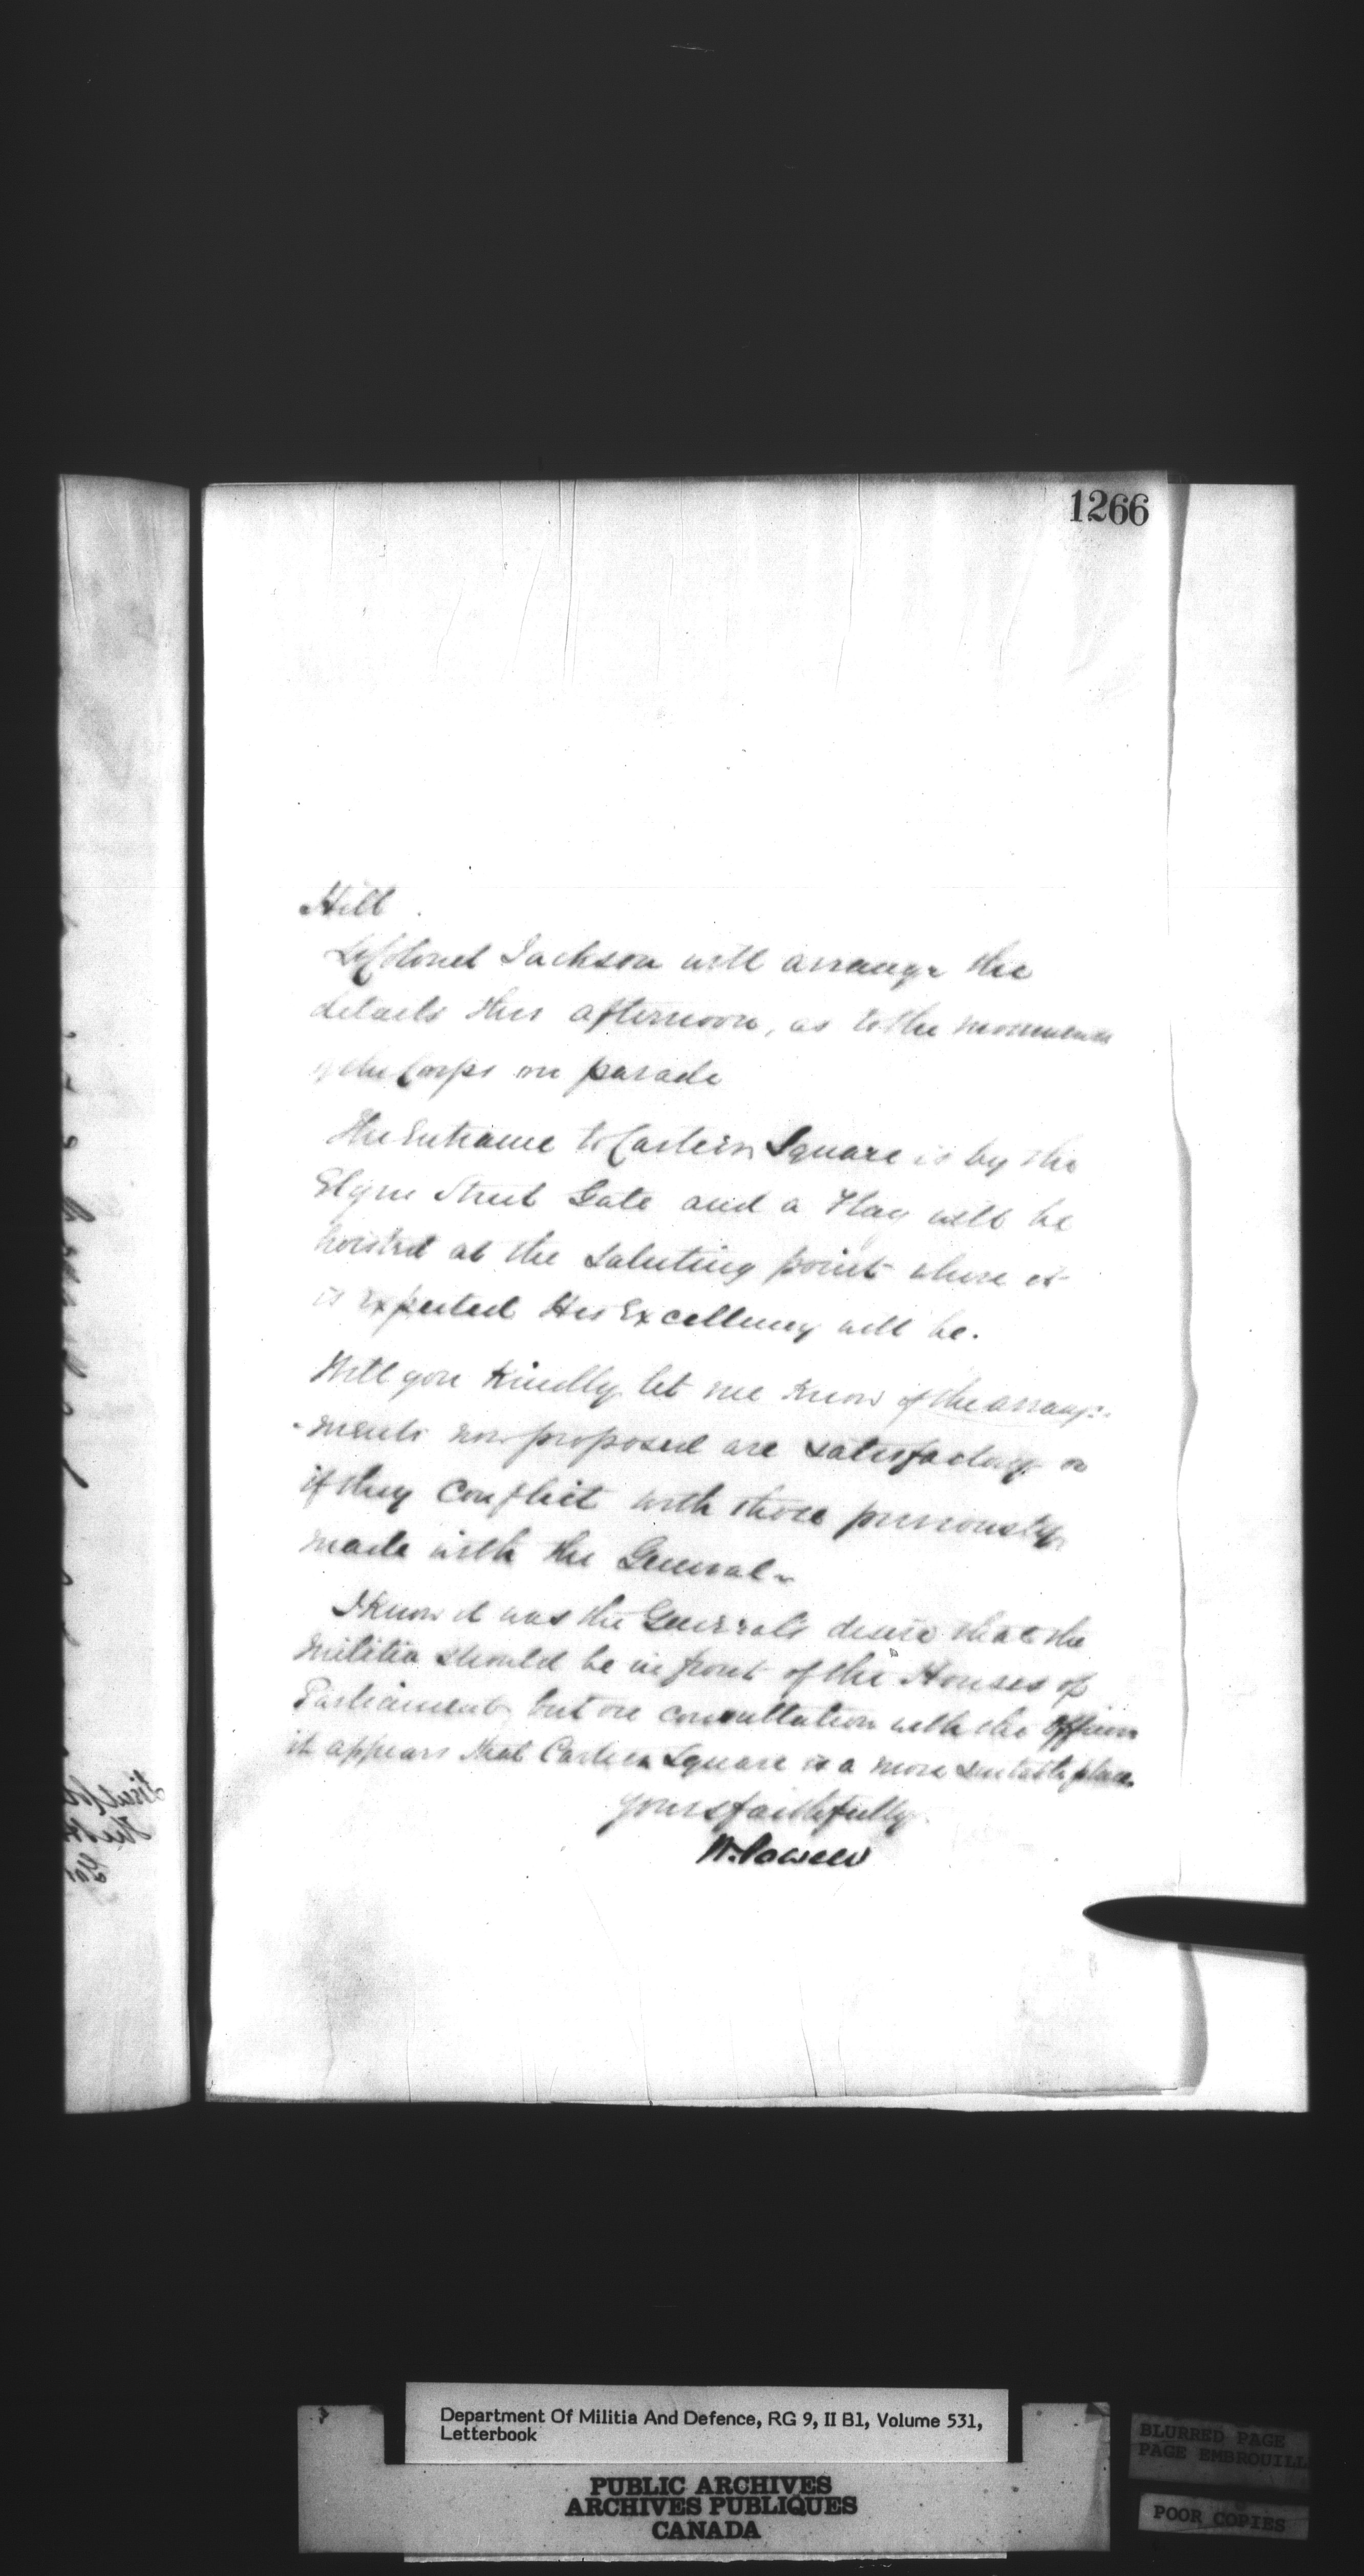 1266
Hill
Lt Colonel Jackson will arrange the
details this afternoon, as to the movements
of the Corps on parade
The Entrance to Cartier Square is by the
Elgin Street Gate and a Flag will be
hoisted at the Saluting point where it
is expected His Excellency will be.
Will you Kindly let me know if the arrange-
-ments now proposed are satisfactory or
if they conflict with those previously
made with the General.
I know it was the General's desire that the
Militia should be in front of the Houses of
Parliament, but on consultation with the Officers
it appears that Cartier Square is a more suitable place.
Yours faithfully
W. Powell
Department Of Militia And Defence, RG 9, II B1, Volume 531,
Letterbook
PUBLIC ARCHIVES
ARCHIVES PUBLIQUES
CANADA
BLURRED PAGE
PAGE EMBROUILL
POOR COPIES